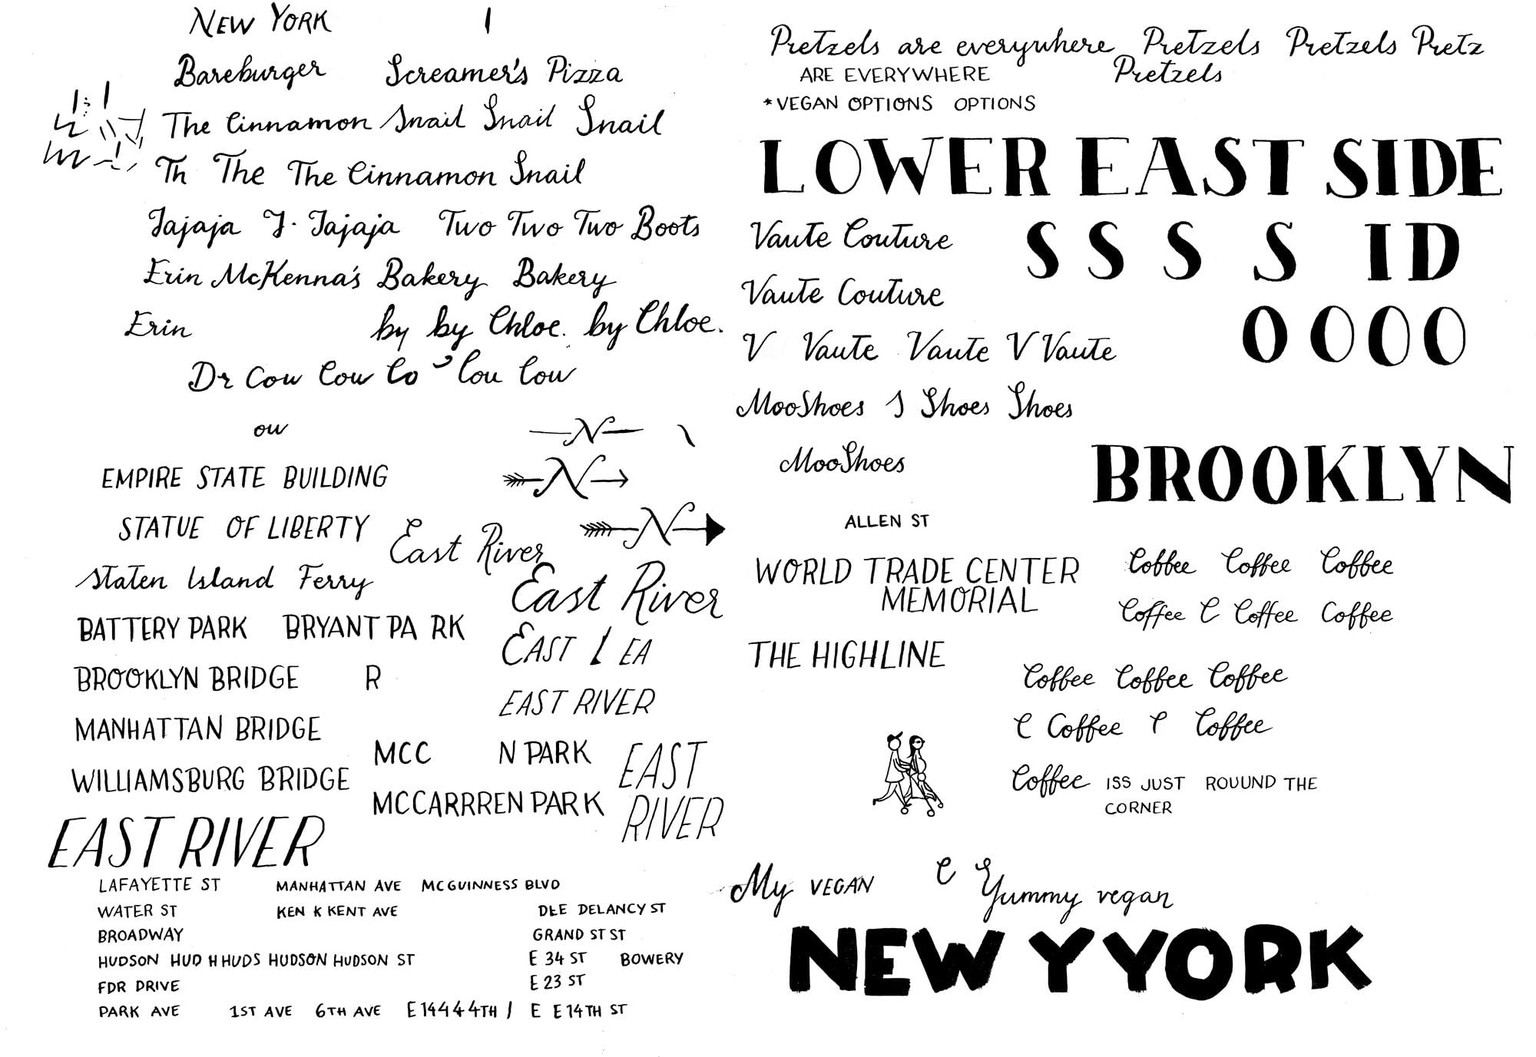 NEW YORK I
Bareburger Screamer's Pizza
The Cinnamon Snail Snail Snail
Th The The Cinnamon Snail
Jajaja J. Jajaja Two Two Two Boots
Erin McKenna's Bakery Bakery
Erin by by Chloe. by Chloe.
Dr Cow Cow Co Cou Cow
ow
N
EMPIRE STATE BUILDING
N
STATUE OF LIBERTY
N
East River
Staten Island Ferry
East River
BATTERY PARK BRYANT PA RK
EAST I EA
BROOKLYN BRIDGE R
EAST RIVER
MANHATTAN BRIDGE
MCC N PARK
EAST
RIVER
WILLIAMSBURG BRIDGE
MCCARRREN PARK
EAST RIVER
LAFAYETTE ST MANHATTAN AVE MCGUINNESS BLVD
WATER ST KEN K KENT AVE DLE DELANCY ST
BROADWAY GRAND ST ST
HUDSON HUD H HUDS HUDSON HUDSON ST E 34 ST BOWERY
FDR DRIVE E 23 ST
PARK AVE 1ST AVE 6TH AVE E14444TH / E E14TH ST
Pretzels are everywhere Pretzels Pretzels Pretz
ARE EVERYWHERE Pretzels
*VEGAN OPTIONS OPTIONS
LOWER EAST SIDE
Vaute Couture S S S S I D
Vaute Couture
O O O O
V Vaute Vaute V Vaute
MooShoes S Shoes Shoes
MooShoes
BROOKLYN
ALLEN ST
WORLD TRADE CENTER
MEMORIAL
Coffee Coffee Coffee
Coffee C Coffee Coffee
THE HIGHLINE
Coffee Coffee Coffee
C Coffee C Coffee
Coffee ISS JUST ROUUND THE
CORNER
My VEGAN C Yummy vegan
NEW Y YORK